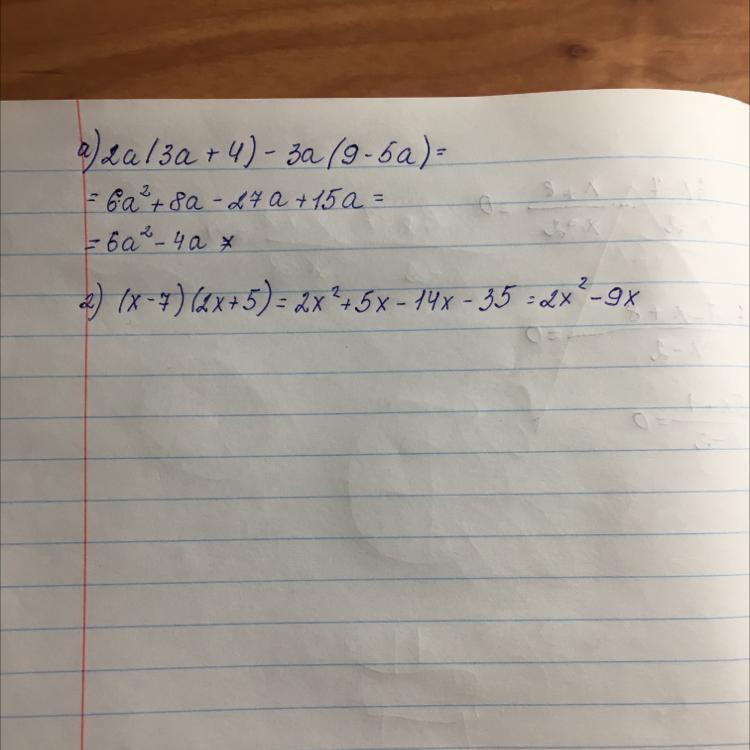 а) 2a(3a + 4) - 3a(9 - 5a) =
= 6a² + 8a - 27a + 15a =
= 6a² - 4a
2) (x - 7)(2x + 5) = 2x² + 5x - 14x - 35 = 2x² - 9x